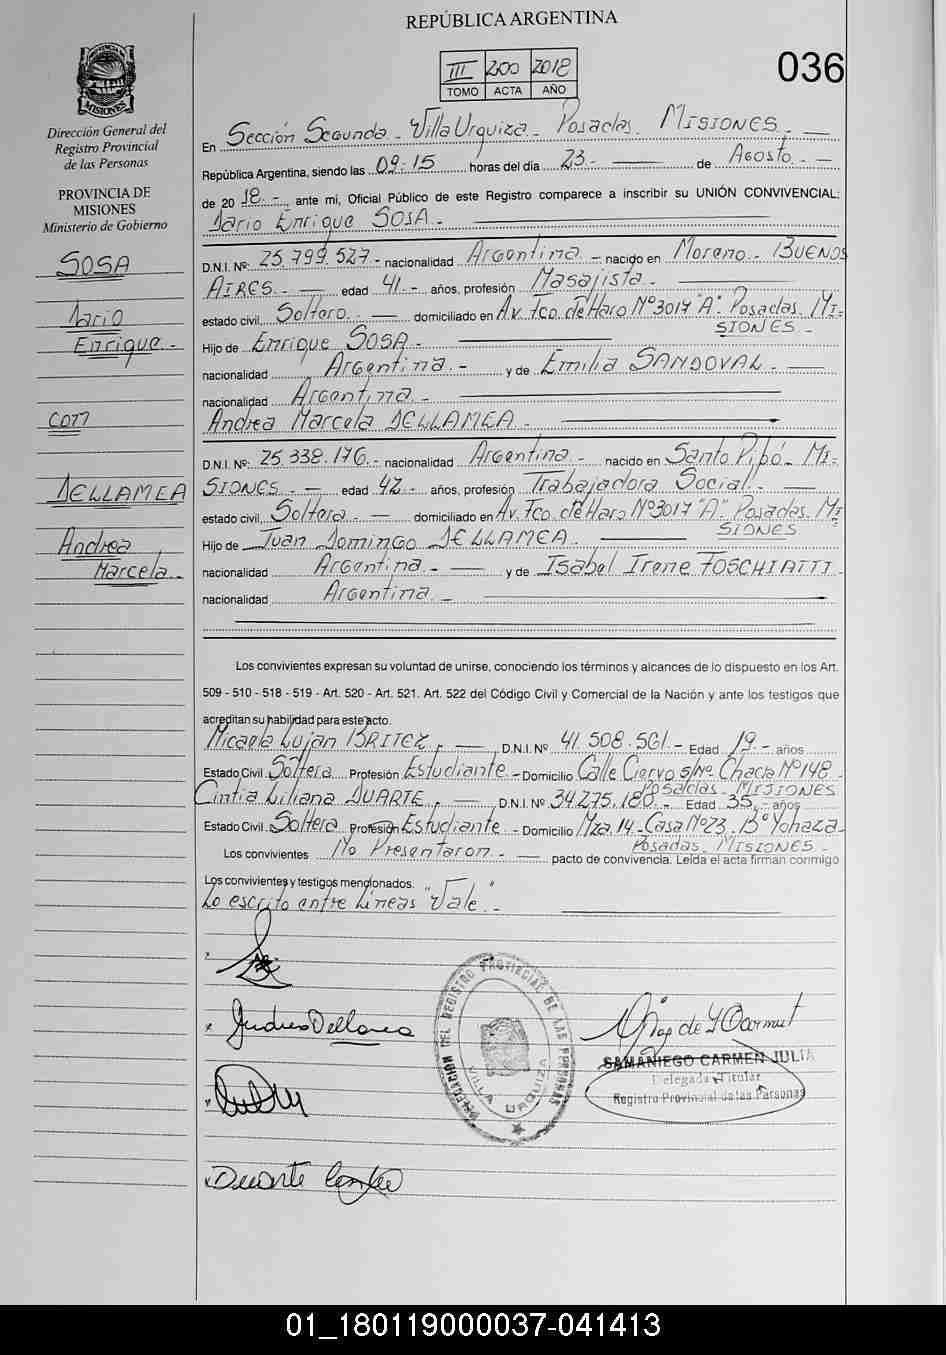 REPÚBLICA ARGENTINA
036
III 200 2018
TOMO ACTA AÑO
PROVINCIA DE MISIONES
Dirección General del
Registro Provincial
de las Personas
PROVINCIA DE
MISIONES
Ministerio de Gobierno
SOSA
Dario
Enrique.-
con
DELLAMEA
Andrea
Marcela.
En Sección Segunda - Villa Urquiza - Posadas. MISIONES.
República Argentina, siendo las 09:15 horas del día 23.- de Agosto.-
de 20 18.-, ante mi, Oficial Público de este Registro comparece a inscribir su UNIÓN CONVIVENCIAL:
Dario Enrique SOSA.-
D.N.I. Nº: 25.799.527.- nacionalidad Argentina.- nacido en Moreno - BUENOS
AIRES.- edad 41.- años, profesión Masajista.-
estado civil, Soltero.- domiciliado en Av. Fco. de Haro Nº3017 "A". Posadas. MI-
SIONES.-
Hijo de Enrique SOSA.-
nacionalidad Argentina.- y de Emilia SANDOVAL.-
nacionalidad Argentina.-
Andrea Marcela DELLAMEA.-
D.N.I. Nº: 25.338.176.- nacionalidad Argentina.- nacido en Santo Pipó - MI-
SIONES.- edad 42.- años, profesión Trabajadora Social.-
estado civil, Soltera.- domiciliado en Av. Fco. de Haro Nº3017 "A" Posadas. MI-
SIONES
Hijo de Juan Domingo DELLAMEA.
nacionalidad Argentina.- y de Isabel Irene FOSCHIATTI.-
nacionalidad Argentina.-
Los convivientes expresan su voluntad de unirse, conociendo los términos y alcances de lo dispuesto en los Art.
509 - 510 - 518 - 519 - Art. 520 - Art. 521. Art. 522 del Código Civil y Comercial de la Nación y ante los testigos que
acreditan su habilidad para este acto.
Micaela Lujan BRITEZ, D.N.I. Nº 41.508.561.- Edad 19.- años
Estado Civil Soltera Profesión Estudiante - Domicilio Calle Ciervo s/Nº. Chacra Nº148.
Posadas - MISIONES
Cintia Liliana DUARTE, D.N.I. Nº 34.275.180.- Edad 35.- años
Estado Civil Soltera Profesión Estudiante - Domicilio Mza. 14 - Casa Nº23. Bº Yohasa
Posadas. MISIONES.-
Los convivientes No Presentaron.- pacto de convivencia. Leída el acta firman conmigo
Los convivientes y testigos mencionados.
Lo escrito entre Lineas "Vale".
Andrea Dellamea
DELEGACION DEL REGISTRO PROVINCIAL DE LAS PERSONAS
VILLA URQUIZA
SAMANIEGO CARMEN JULIA
Delegada Titular
Registro Provincial de las Personas
Duarte Cintia
01_180119000037-041413